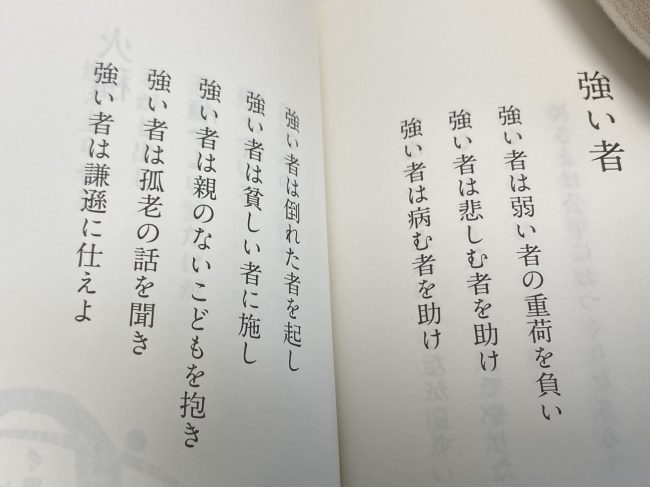 強い者
強い者は弱い者の重荷を負い
強い者は悲しむ者を助け
強い者は病む者を助け
強い者は倒れた者を起し
強い者は貧しい者に施し
強い者は親のないこどもを抱き
強い者は孤老の話を聞き
強い者は謙遜に仕えよ